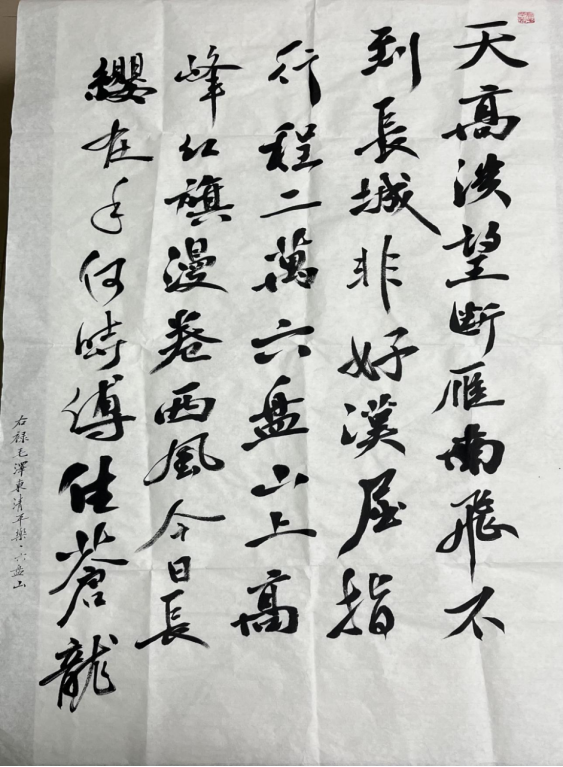 天高淡望断雁南飛不
到長城非好漢屈指
行程二萬六盘山上高
峰红旗漫卷西風今日長
纓在手何時縛住蒼龍
右録毛澤東清平樂·六盘山